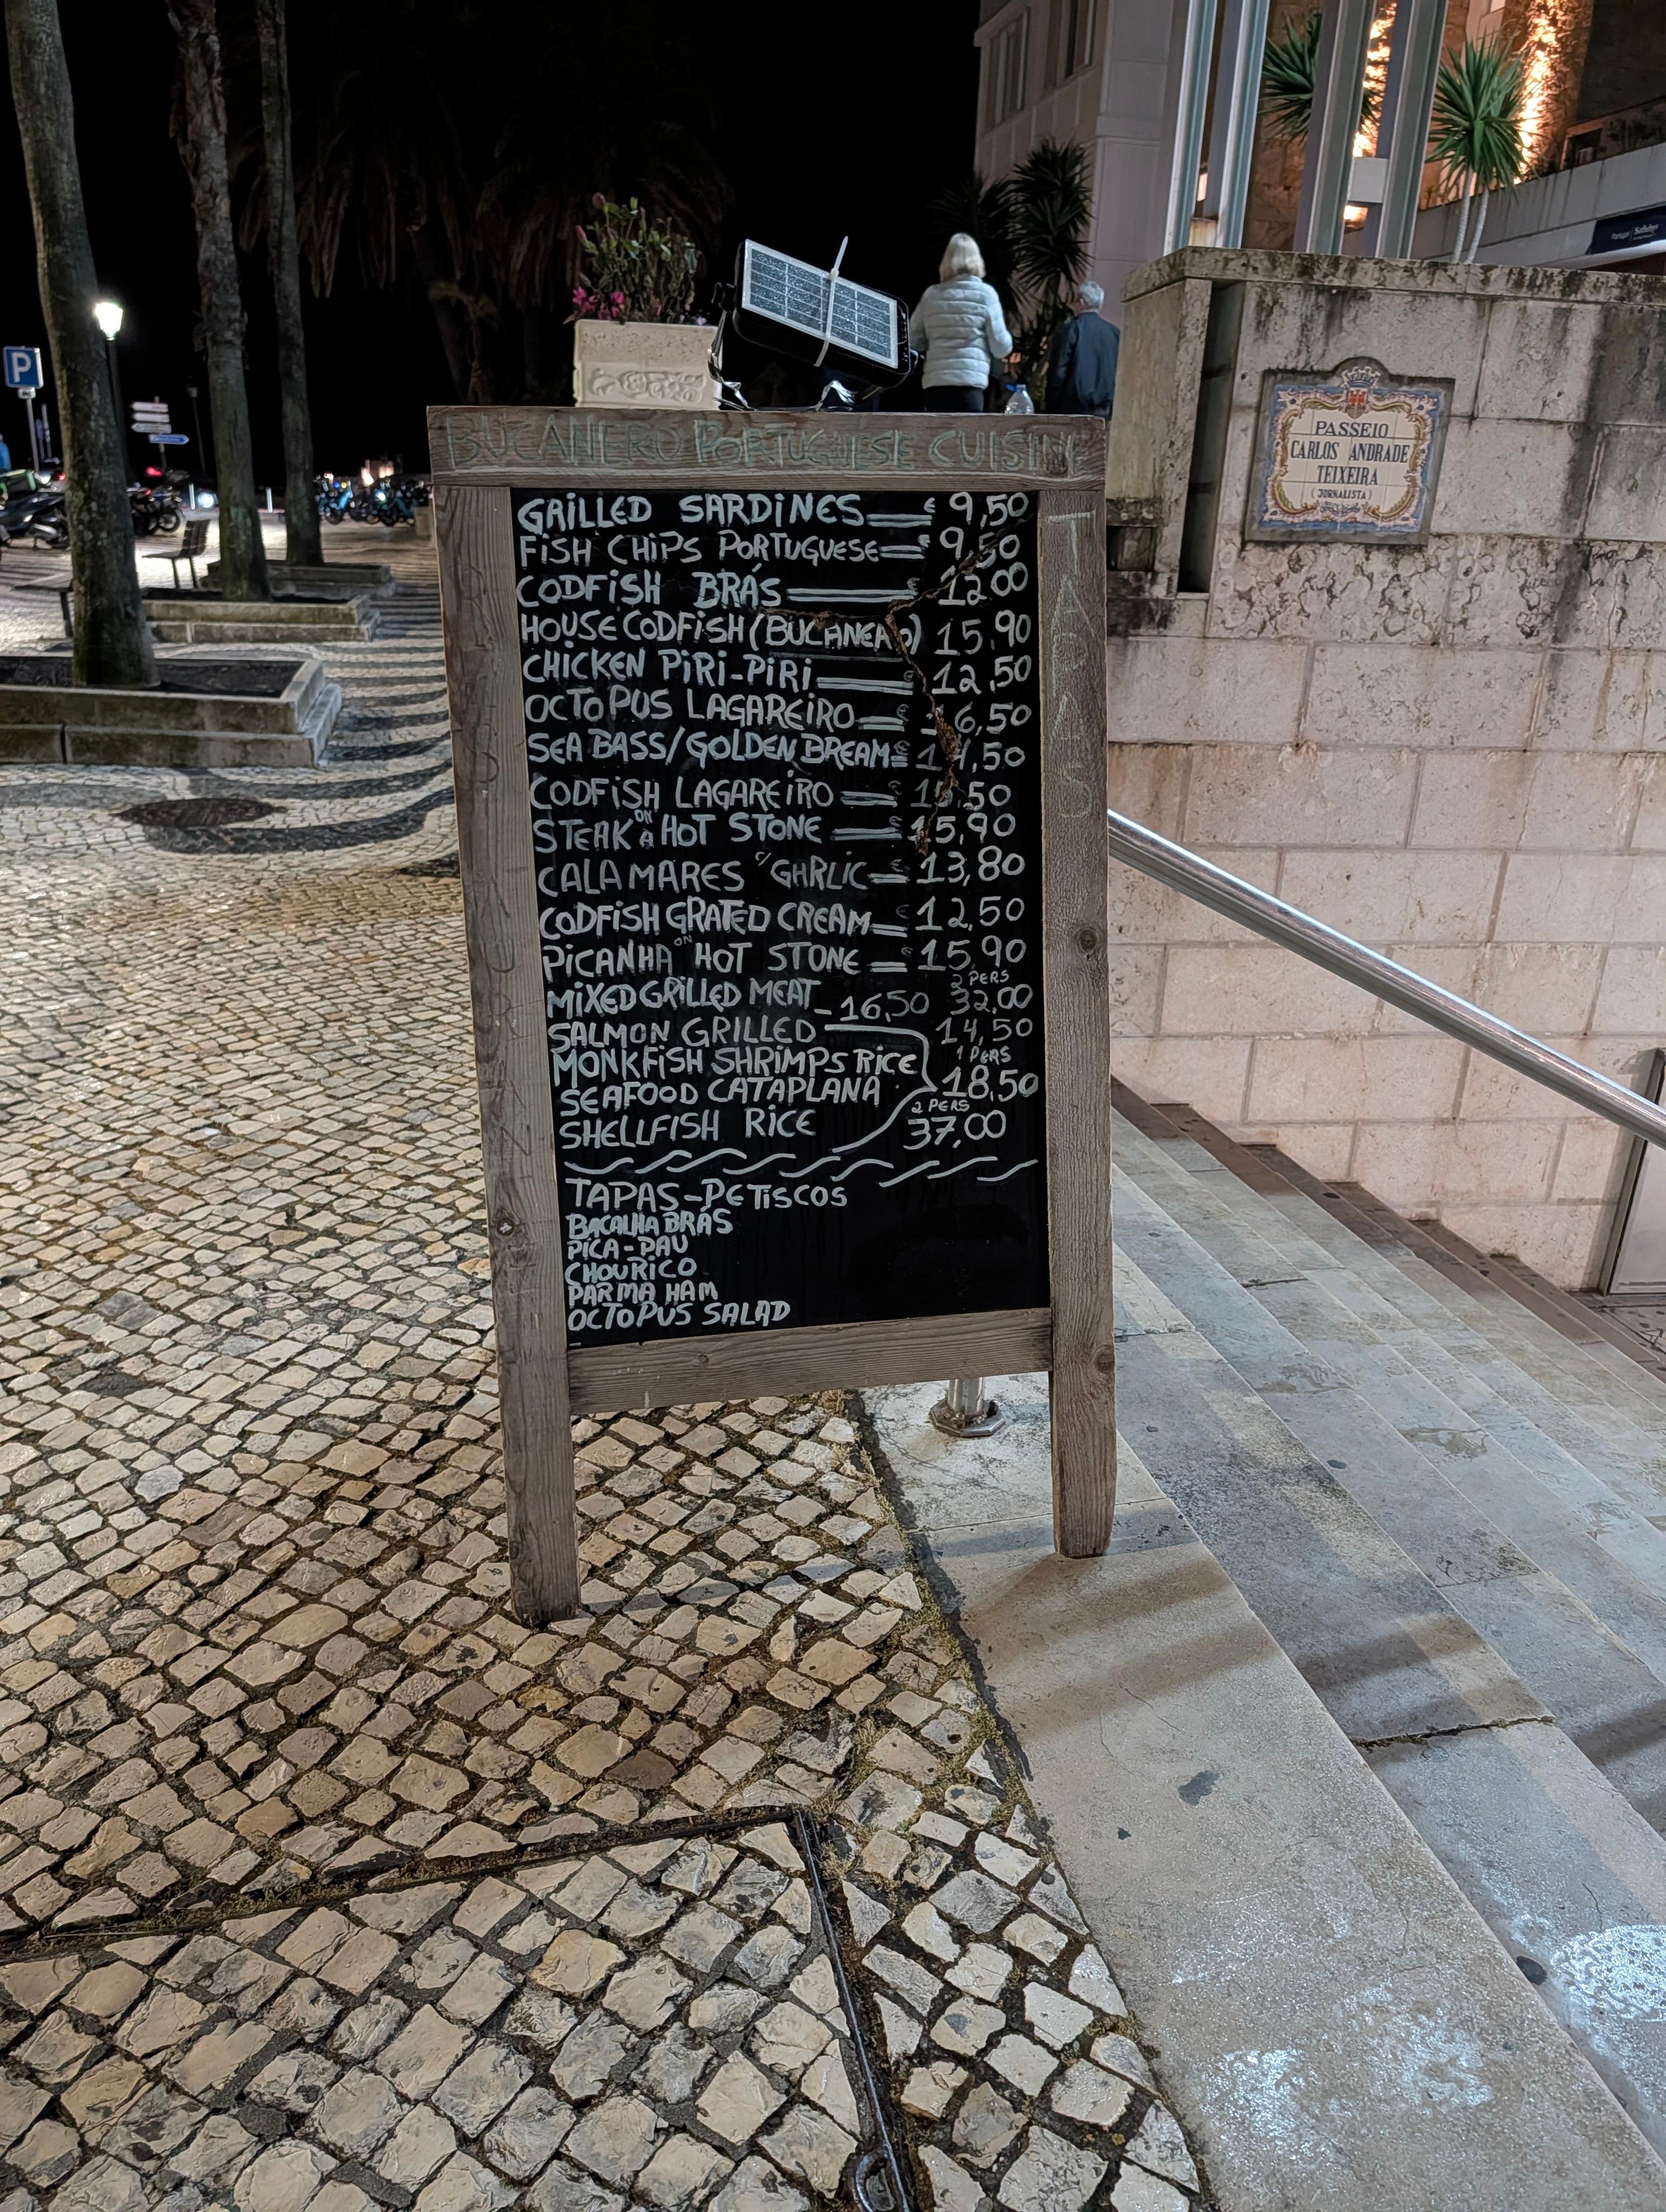 P
Portugal Sotheby's
PASSEIO
CARLOS ANDRADE
TEIXEIRA
(JORNALISTA)
BUCANERO PORTUGUESE CUISINE
TAPAS
GRILLED SARDINES € 9,50
FISH CHIPS PORTUGUESE € 9,50
CODFISH BRÁS € 12,00
HOUSE CODFISH (BUCANERO) 15,90
CHICKEN PIRI-PIRI € 12,50
OCTOPUS LAGAREIRO € 16,50
SEA BASS/GOLDEN BREAM € 14,50
CODFISH LAGAREIRO € 15,50
STEAK ON A HOT STONE € 15,90
CALAMARES C/ GARLIC € 13,80
CODFISH GRATED CREAM € 12,50
PICANHA ON HOT STONE € 15,90
MIXED GRILLED MEAT - 16,50 2 PERS 32,00
SALMON GRILLED 14,50
MONKFISH SHRIMPS RICE 1 PERS
SEAFOOD CATAPLANA 18,50
SHELLFISH RICE 2 PERS 37,00
TAPAS-PETISCOS
BACALHA BRÁS
PICA-PAU
CHOURICO
PARMA HAM
OCTOPUS SALAD